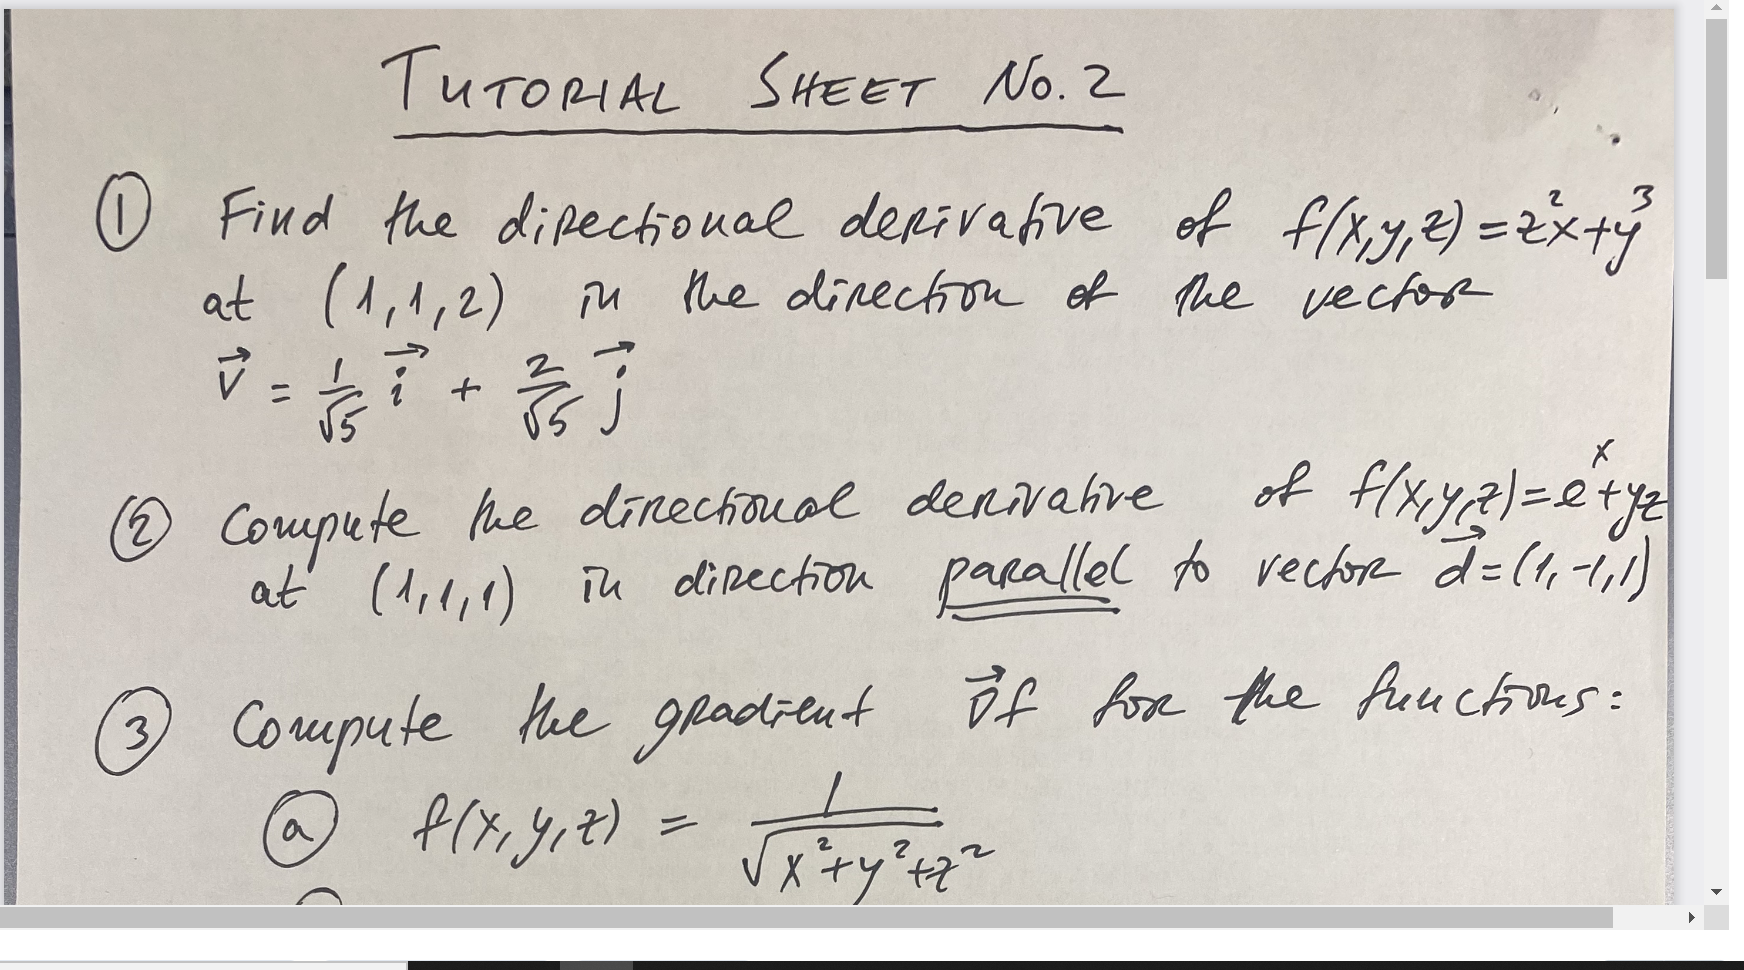 TUTORIAL SHEET No. 2
① Find the directional derivative of f(x,y,z) = z²x+y³
at (1,1,2) in the direction of the vector
v⃗ = 1/√5 i⃗ + 2/√5 j⃗
② Compute the directional derivative of f(x,y,z)=eˣ+yz
at (1,1,1) in direction parallel to vector d⃗=(1,-1,1)
③ Compute the gradient ∇⃗f for the functions:
ⓐ f(x,y,z) = 1/√(x²+y²+z²)